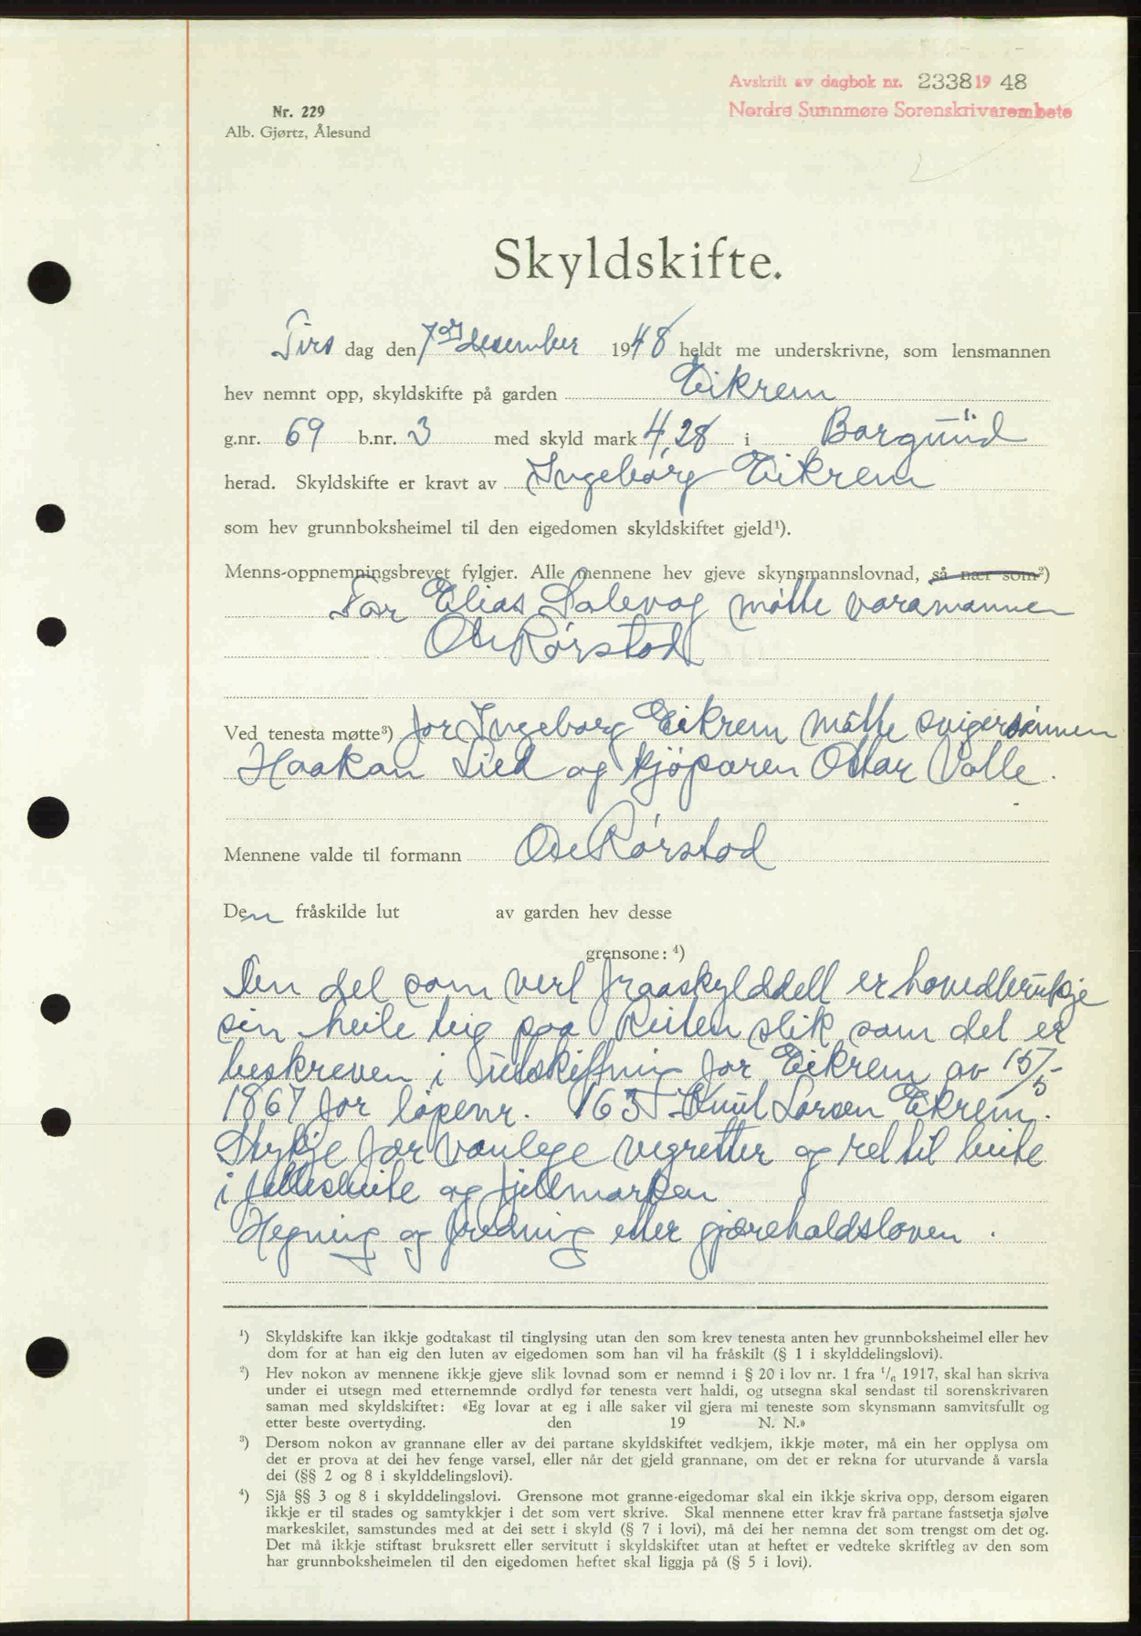 Avskrift av dagbok nr. 2338 19 48
Nordre Sunnmøre Sorenskrivarembete
Nr. 229
Alb. Gjørtz, Ålesund
Skyldskifte.
Tirs dag den 7de desember 1948 heldt me underskrivne, som lensmannen
hev nemnt opp, skyldskifte på garden Eikrem
g.nr. 69 b.nr. 3 med skyld mark 4,28 i Borgund
herad. Skyldskifte er kravt av Ingeborg Eikrem
som hev grunnboksheimel til den eigedomen skyldskiftet gjeld¹).
Menns-oppnemningsbrevet fylgjer. Alle mennene hev gjeve skynsmannslovnad, så nær som²)
For Elias Salevog møtte varamannen
Ole Rørstad
Ved tenesta møtte³) for Ingeborg Eikrem møtte svigersønnen
Haakan Lied og kjøparen Ottar Valle.
Mennene valde til formann Ole Rørstad
Den fråskilde lut av garden hev desse
grensone: ⁴)
Den del som vert fraaskylddelt er hovedbrukje
sin heile teig paa Reiten slik som det er
beskreven i Utskiftning for Eikrem av 15/5-
1867 for løpenr. 163 Knut Larsen Eikrem.
Stykje før vanlege vegretter og ret til beite
i fellesbeite og fjellmarken
Hegning og fredning etter gjæreholdsloven.
¹) Skyldskifte kan ikkje godtakast til tinglysing utan den som krev tenesta anten hev grunnboksheimel eller hev
dom for at han eig den luten av eigedomen som han vil ha fråskilt (§ 1 i skylddelingslovi).
²) Hev nokon av mennene ikkje gjeve slik lovnad som er nemnd i § 20 i lov nr. 1 fra ¹/₆ 1917, skal han skriva
under ei utsegn med etternemnde ordlyd før tenesta vert haldi, og utsegna skal sendast til sorenskrivaren
saman med skyldskiftet: «Eg lovar at eg i alle saker vil gjera mi teneste som skynsmann samvitsfullt og
etter beste overtyding. den 19 N. N.»
³) Dersom nokon av grannane eller av dei partane skyldskiftet vedkjem, ikkje møter, må ein her opplysa om
det er prova at dei hev fenge varsel, eller når det gjeld grannane, om det er rekna for uturvande å varsla
dei (§§ 2 og 8 i skylddelingslovi).
⁴) Sjå §§ 3 og 8 i skylddelingslovi. Grensone mot granne-eigedomar skal ein ikkje skriva opp, dersom eigaren
ikkje er til stades og samtykkjer i det som vert skrive. Skal mennene etter krav frå partane fastsetja sjølve
markeskilet, samstundes med at dei sett i skyld (§ 7 i lovi), må dei her nemna det som trengst om det og.
Det må ikkje stiftast bruksrett eller servitutt i skyldskiftet utan at heftet er vedteke skriftleg av den som
har grunnboksheimelen til den eigedomen heftet skal liggja på (§ 5 i lovi).